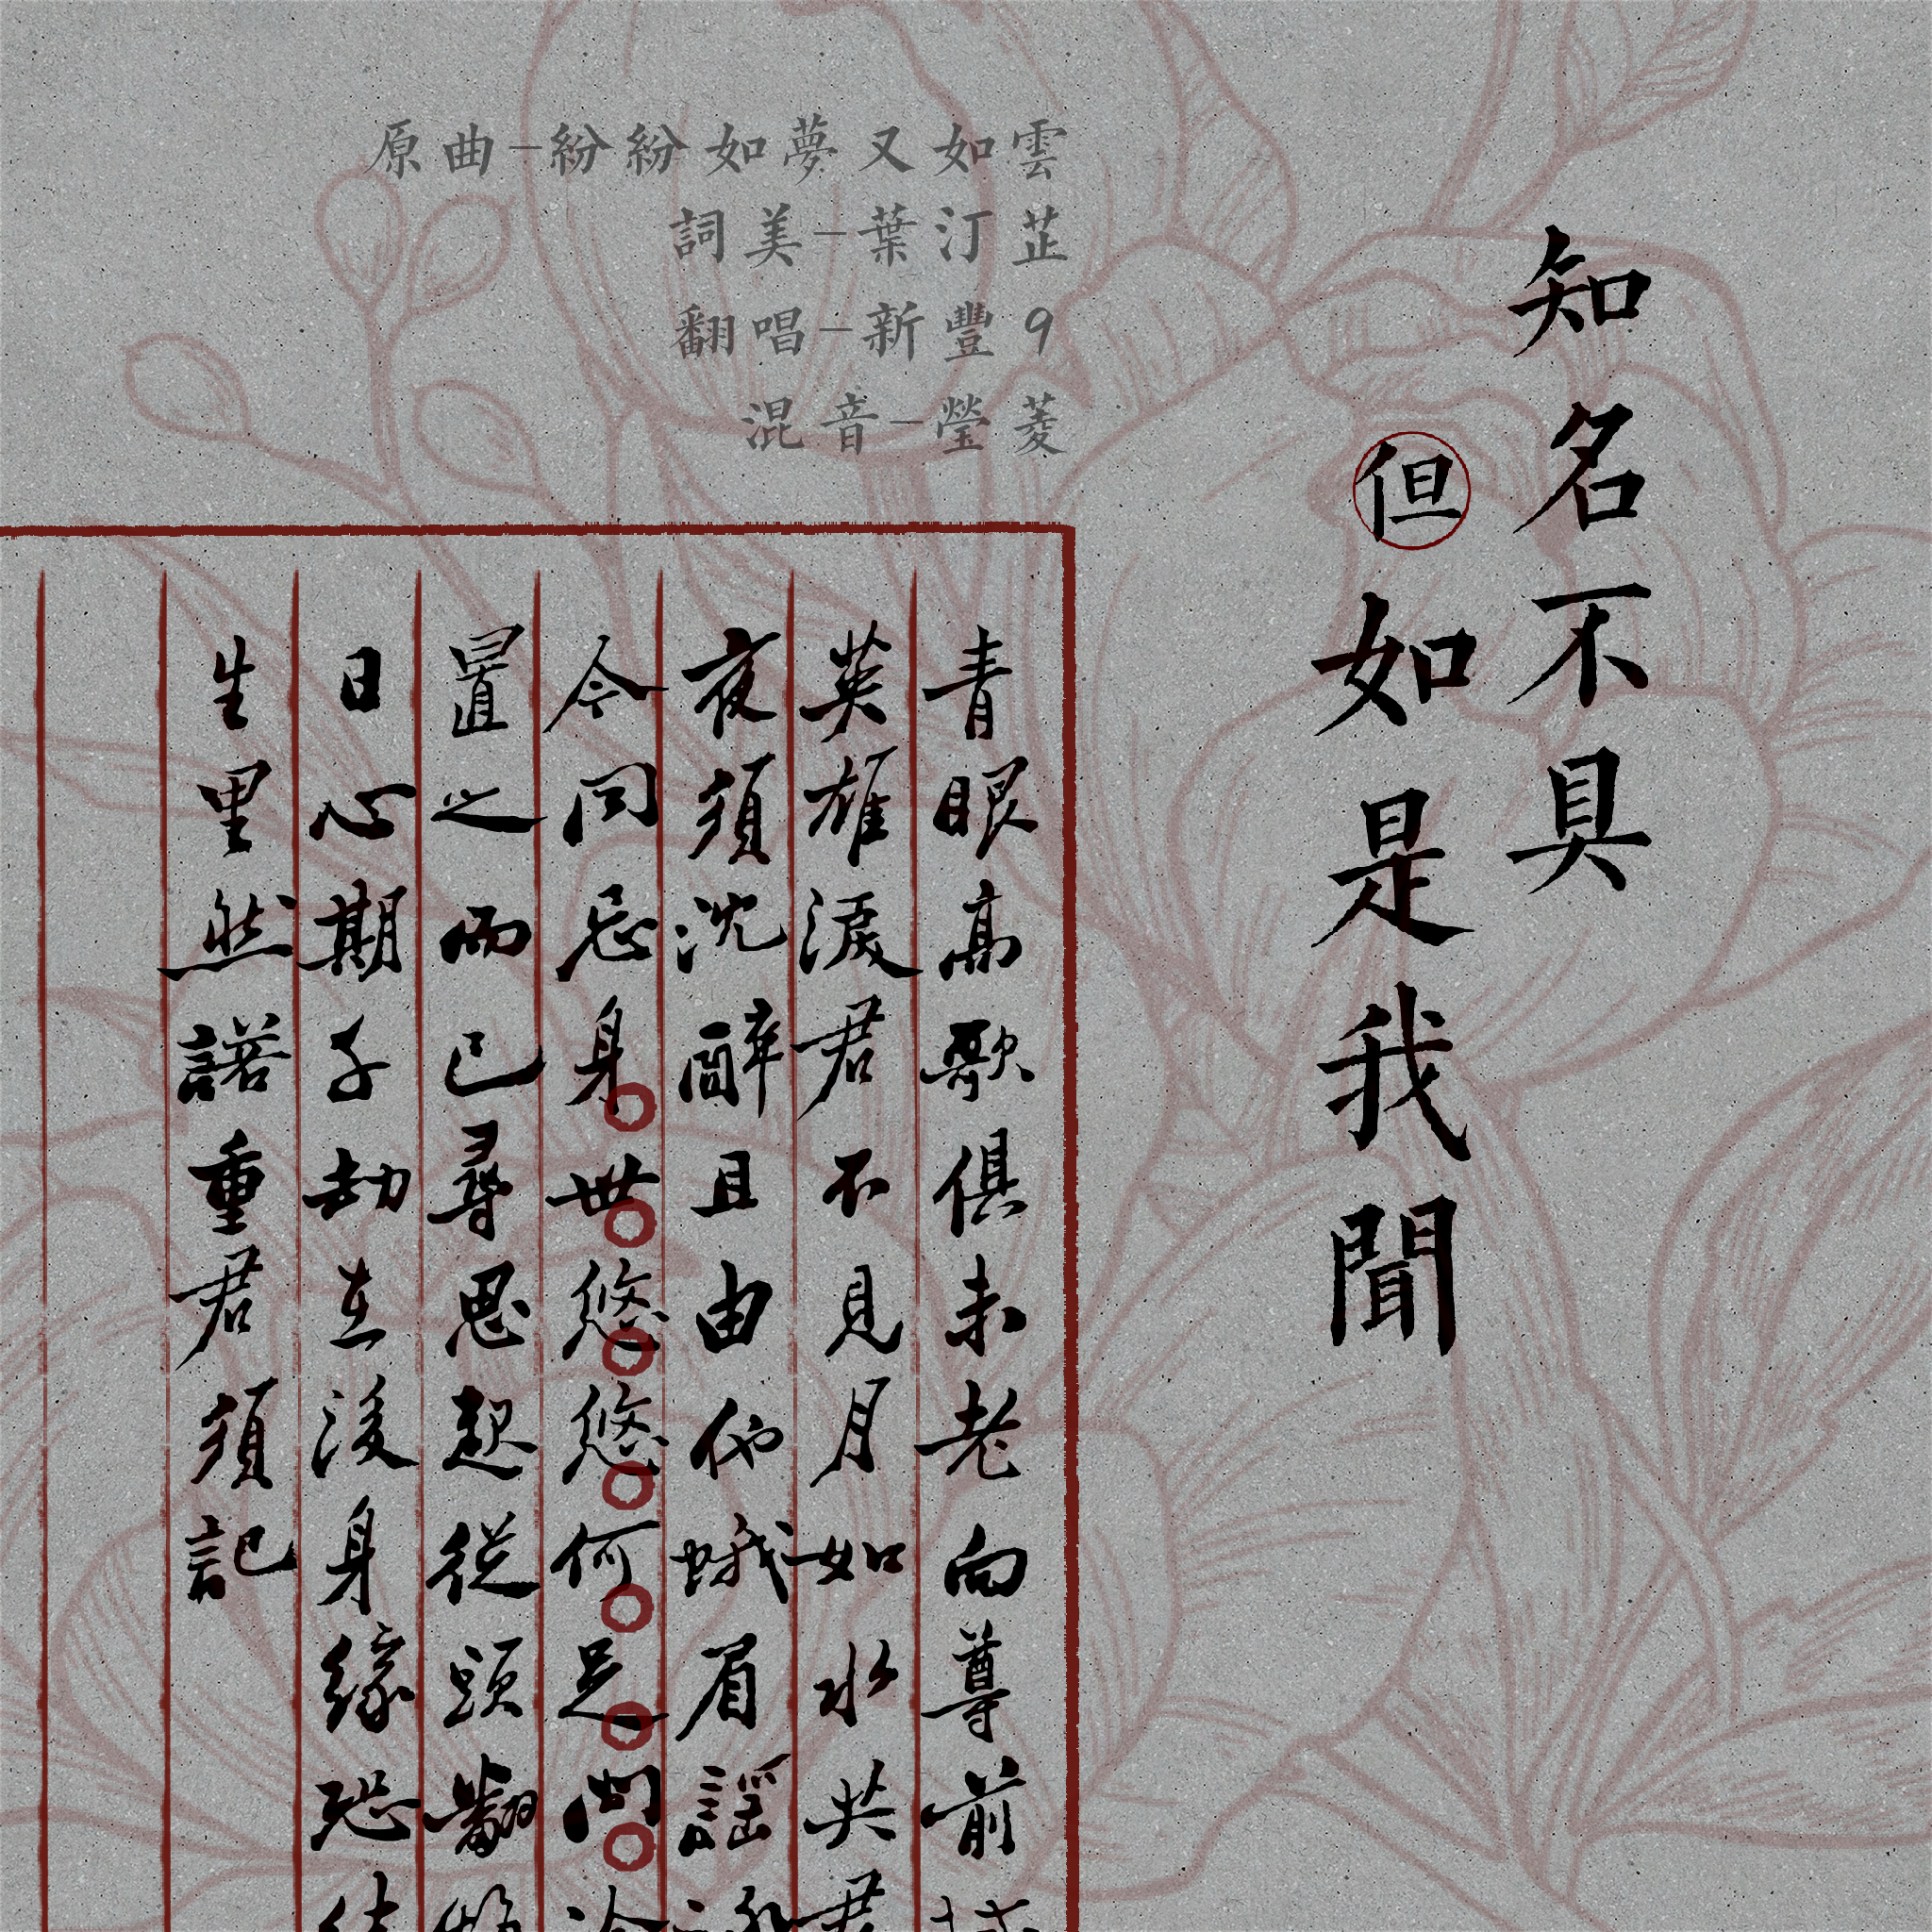 知名不具
但如是我聞
原曲-紛紛如夢又如雲
詞美-葉汀芷
翻唱-新豐9
混音-瑩菱
青眼高歌俱未老向尊前
英雄淚君不見月如水共君
夜須沈醉且由他蛾眉謠
今同忌身世悠悠何足問
置之而已尋思起從頭翻
日心期千劫在後身緣恐
生里然諾重君須記